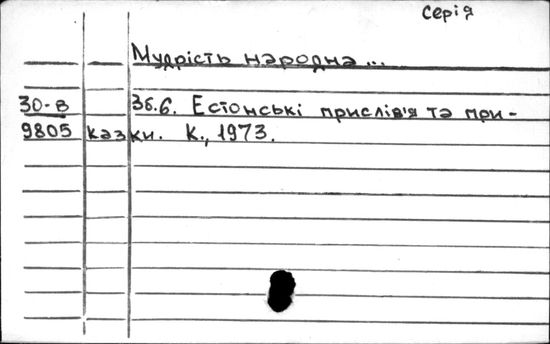 Серія
Мудрість народна...
30-в Зб.6. Естонські прислів'я та при-
9805 казки. К., 1973.